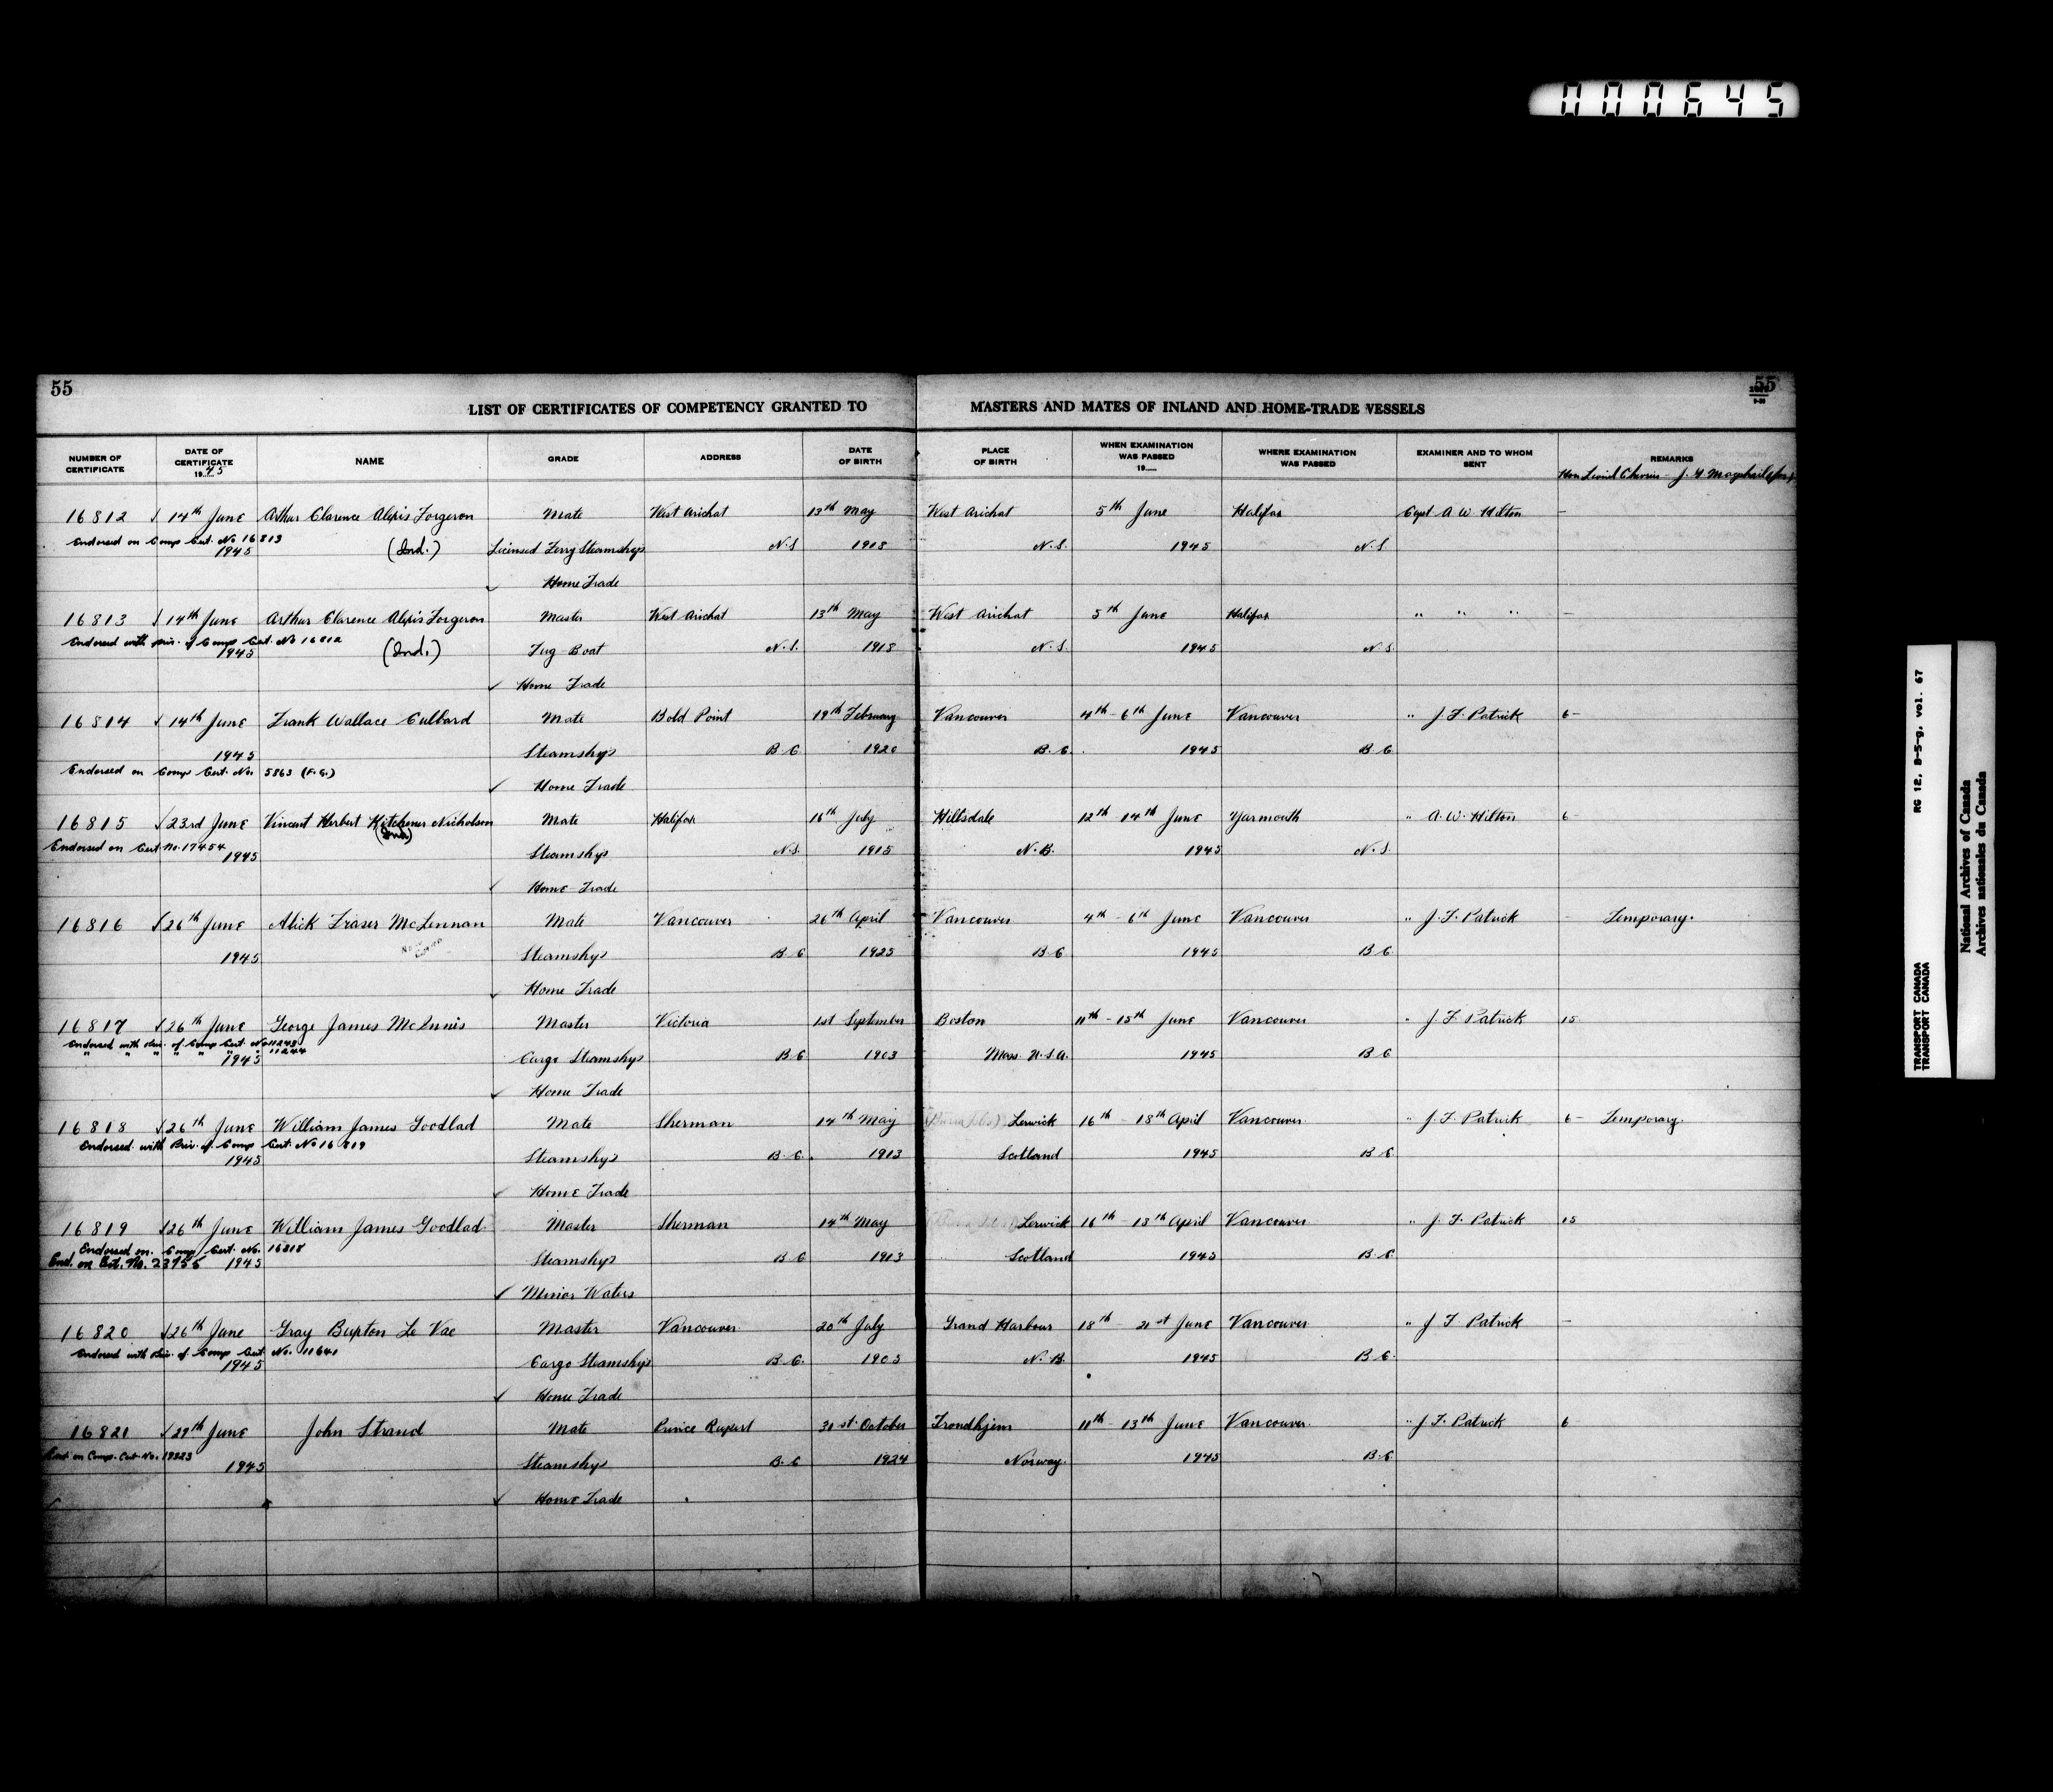 000645
55
55
LIST OF CERTIFICATES OF COMPETENCY GRANTED TO MASTERS AND MATES OF INLAND AND HOME-TRADE VESSELS
NUMBER OF CERTIFICATE DATE OF CERTIFICATE 1945 NAME GRADE ADDRESS DATE OF BIRTH PLACE OF BIRTH WHEN EXAMINATION WAS PASSED 19 WHERE EXAMINATION WAS PASSED EXAMINER AND TO WHOM SENT REMARKS
Hon Lionel Chevrier - J. G.
16812 √ 14th June Arthur Clarence Alexis Forgeron Mate West Arichat 13th May West Arichat 5th June Halifax Capt A W Hilton –
Endorsed on Comp Cert. No 16813
1945 (Ind.) Licensed Ferry Steamships N.S 1918 N.S. 1945 N.S
✓ Home Trade
16813 √ 14th June Arthur Clarence Alexis Forgeron Master West Arichat 13th May West Arichat 5th June Halifax " " " –
Endorsed with priv. of Comp Cert. No 16812
1945 (Ind.) Tug Boat N.S. 1918 N.S. 1945 N.S.
✓ Home Trade
16814 √ 14th June Frank Wallace Culbard Mate Bold Point 19th February Vancouver 4th - 6th June Vancouver " J. F. Patrick 6 –
1945 Steamships B C 1920 B. C. 1945 B C
Endorsed on Comp Cert. No. 5863 (F.G.)
✓ Home Trade
16815 √ 23rd June Vincent Herbert Kitchener Nicholson Mate Halifax 16th July Hillsdale 12th - 14th June Yarmouth " A. W. Hilton 6 –
(Ind)
Endorsed on Cert No. 17454
1945 Steamships N.S. 1915 N.B. 1945 N.S.
✓ Home Trade
16816 √ 26th June Alick Fraser McLennan Mate Vancouver 26th April Vancouver 4th - 6th June Vancouver " J. F. Patrick – Temporary.
1945 Steamships B C 1925 B C 1945 B C
✓ Home Trade
16817 √ 26th June George James McInnis Master Victoria 1st September Boston 11th - 15th June Vancouver " J F Patrick 15
Endorsed with priv. of Comp Cert. No 11243
" " " " " " " 11244
1945 Cargo Steamships B C 1903 Mass. U.S.A. 1945 B C
✓ Home Trade
16818 √ 26th June William James Goodlad Mate Sherman 14th May Lerwick 16th - 18th April Vancouver " J. F. Patrick 6 – Temporary.
Endorsed with Priv. of Comp Cert. No 16819
1945 Steamships B. C. 1913 Scotland 1945 B C
✓ Home Trade
16819 √ 26th June William James Goodlad Master Sherman 14th May Lerwick 16th - 18th April Vancouver " J. F. Patrick 15
Endorsed on Comp Cert. No. 16818
End. on Cert. No. 23756 1945 Steamships B C 1913 Scotland 1945 B C
✓ Minor Waters
16820 √ 26th June Gray Burton Le Vae Master Vancouver 20th July Grand Harbour 18th - 21st June Vancouver " J F Patrick –
Endorsed with priv. of Comp Cert No. 11641
1945 Cargo Steamships B. C. 1903 N. B. 1945 B C.
✓ Home Trade
16821 √ 29th June John Strand Mate Prince Rupert 31st October Trondhjem 11th - 13th June Vancouver " J F. Patrick 6
on Comp. Cert. No. 19323
1945 Steamships B. C 1924 Norway. 1945 B C
✓ Home Trade
RG 12, B-5-g, vol. 67
TRANSPORT CANADA
TRANSPORT CANADA
National Archives of Canada
Archives nationales du Canada